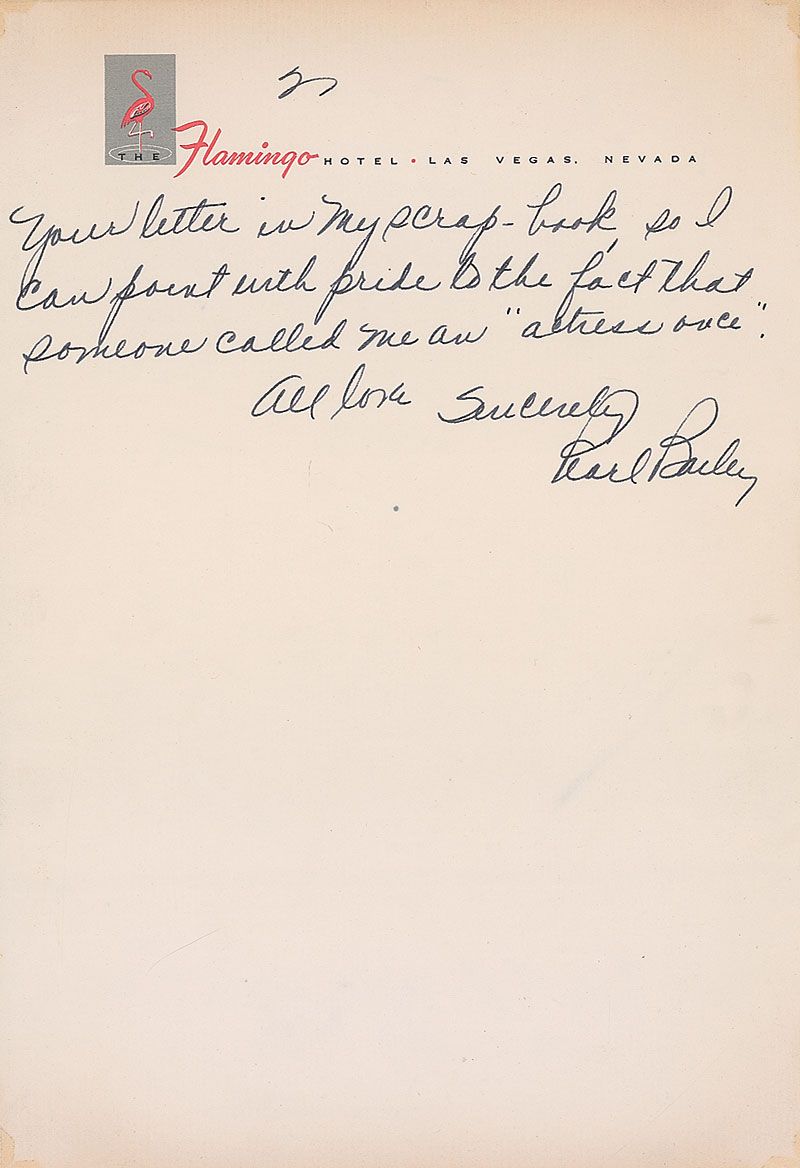 2
THE Flamingo HOTEL • LAS VEGAS, NEVADA
Your letter in my scrap-book, so I
can point with pride to the fact that
someone called me an "actress once".
All love Sincerely
Pearl Bailey